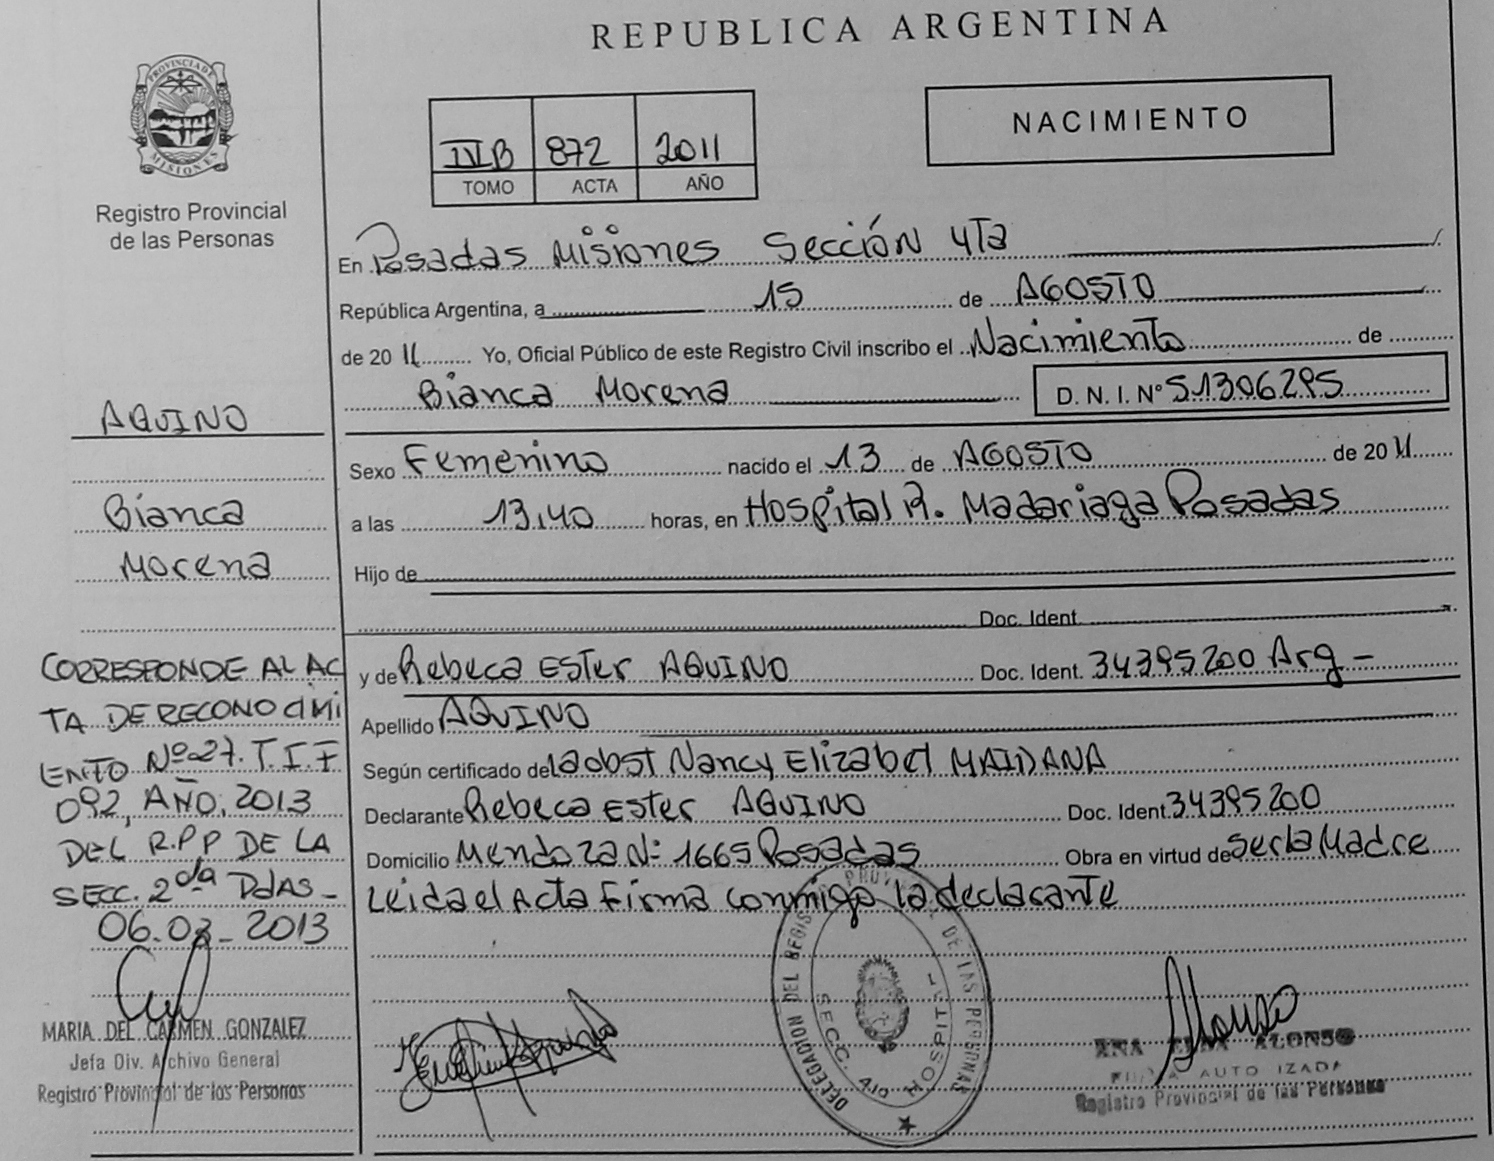 REPUBLICA ARGENTINA
PROVINCIA DE
MISIONES
Registro Provincial
de las Personas
872 2011
TOMO ACTA AÑO
NACIMIENTO
En Posadas Misiones Sección 4Ta
República Argentina, a 15 de AGOSTO
de 2011 Yo, Oficial Público de este Registro Civil inscribo el Nacimiento de
Bianca Morena D. N. I. Nº 51306295
AQUINO
Sexo Femenino nacido el 13 de AGOSTO de 2011
Bianca
a las 13.40 horas, en Hospital R. Madariaga Posadas
Morena
Hijo de
Doc. Ident.
y de Rebeca Ester AQUINO Doc. Ident. 34395200 Arg -
Apellido AQUINO
Según certificado de la obst Nancy Elizabet MAIDANA
Declarante Rebeca Ester AQUINO Doc. Ident. 34395200
Domicilio Mendoza Nº 1665 Posadas Obra en virtud de ser la Madre
Leida el Acta Firma conmigo la declarante
CORRESPONDE AL AC
TA DE RECONOCIMI
ENTO Nº 27. T. I. F
092, AÑO, 2013
DEL R.P.P DE LA
SECC. 2da PdAS -
06.03-2013
MARIA DEL CARMEN GONZALEZ
Jefa Div. Archivo General
Registro Provincial de las Personas
DELEGACION DEL REGISTRO PROVINCIAL DE LAS PERSONAS
SECC. HOSPITAL
ALONSO
AUTORIZADA
Registro Provincial de las Personas